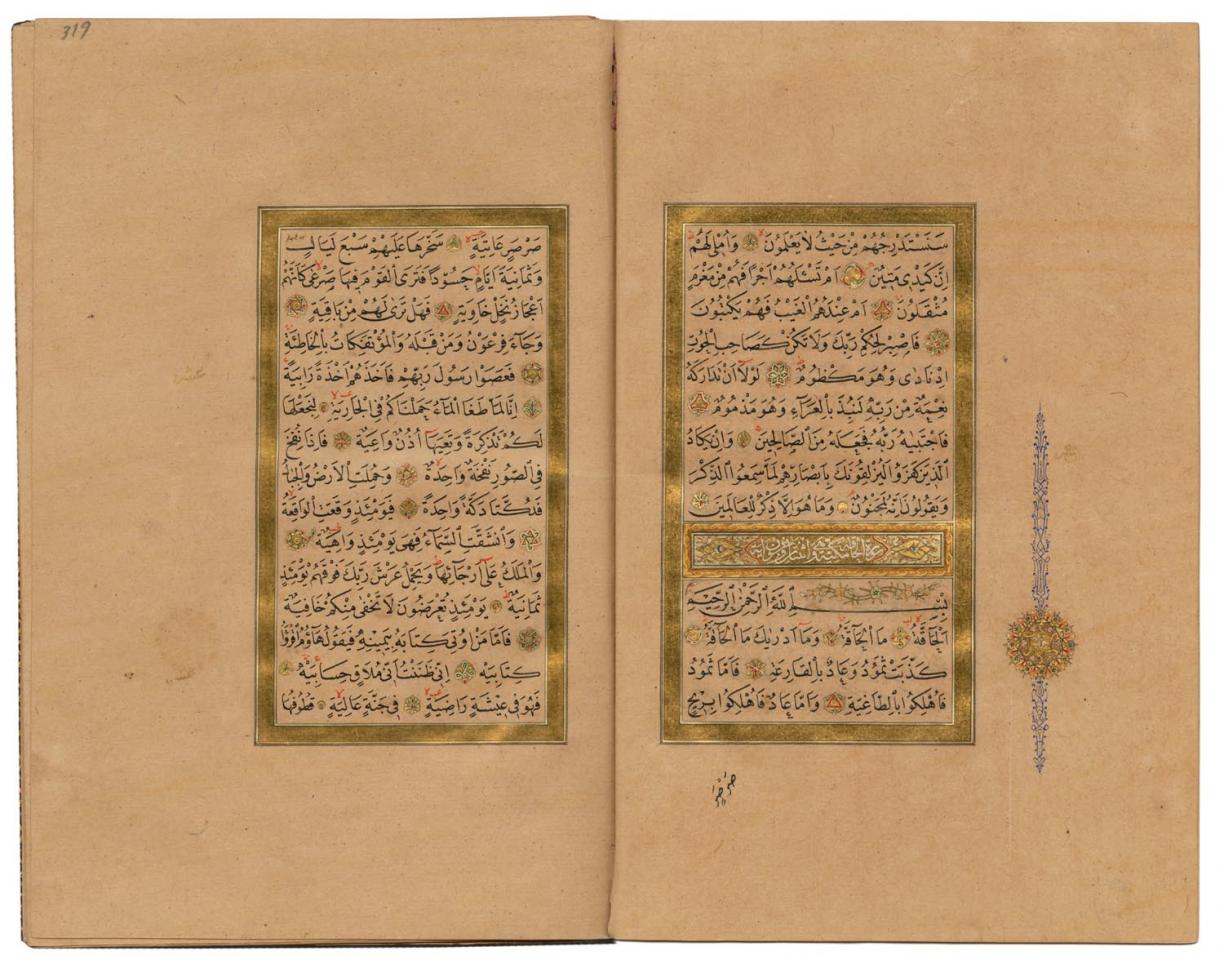 سَنَسْتَدْرِجُهُمْ مِنْ حَيْثُ لَا يَعْلَمُونَ وَاُمْلِى لَهُمْ
اِنَّ كَيْدِى مَتِينٌ اَمْ تَسْئَلُهُمْ اَجْرًا فَهُمْ مِنْ مَغْرَمٍ
مُثْقَلُونَ اَمْ عِنْدَهُمُ الْغَيْبُ فَهُمْ يَكْتُبُونَ
فَاصْبِرْ لِحُكْمِ رَبِّكَ وَلَا تَكُنْ كَصَاحِبِ الْحُوتِ
اِذْ نَادٰى وَهُوَ مَكْظُومٌ لَوْلَا اَنْ تَدَارَكَهُ
نِعْمَةٌ مِنْ رَبِّهِ لَنُبِذَ بِالْعَرَاءِ وَهُوَ مَذْمُومٌ
فَاجْتَبٰيهُ رَبُّهُ فَجَعَلَهُ مِنَ الصَّالِحِينَ وَاِنْ يَكَادُ
الَّذِينَ كَفَرُوا لَيُزْلِقُونَكَ بِاَبْصَارِهِمْ لَمَّا سَمِعُوا الذِّكْرَ
وَيَقُولُونَ اِنَّهُ لَمَجْنُونٌ وَمَا هُوَ اِلَّا ذِكْرٌ لِلْعَالَمِينَ
بِسْمِ اللّٰهِ الرَّحْمٰنِ الرَّحِيمِ
اَلْحَاقَّةُ مَا الْحَاقَّةُ وَمَا اَدْرٰيكَ مَا الْحَاقَّةُ
كَذَّبَتْ ثَمُودُ وَعَادٌ بِالْقَارِعَةِ فَاَمَّا ثَمُودُ
فَاُهْلِكُوا بِالطَّاغِيَةِ وَاَمَّا عَادٌ فَاُهْلِكُوا بِرِيحٍ
صَرْصَرٍ
319
صَرْصَرٍ عَاتِيَةٍ سَخَّرَهَا عَلَيْهِمْ سَبْعَ لَيَالٍ
وَثَمَانِيَةَ اَيَّامٍ حُسُومًا فَتَرَى الْقَوْمَ فِيهَا صَرْعٰى كَاَنَّهُمْ
اَعْجَازُ نَخْلٍ خَاوِيَةٍ فَهَلْ تَرٰى لَهُمْ مِنْ بَاقِيَةٍ
وَجَاءَ فِرْعَوْنُ وَمَنْ قَبْلَهُ وَالْمُؤْتَفِكَاتُ بِالْخَاطِئَةِ
فَعَصَوْا رَسُولَ رَبِّهِمْ فَاَخَذَهُمْ اَخْذَةً رَابِيَةً
اِنَّا لَمَّا طَغَا الْمَاءُ حَمَلْنَاكُمْ فِى الْجَارِيَةِ لِنَجْعَلَهَا
لَكُمْ تَذْكِرَةً وَتَعِيَهَا اُذُنٌ وَاعِيَةٌ فَاِذَا نُفِخَ
فِى الصُّورِ نَفْخَةٌ وَاحِدَةٌ وَحُمِلَتِ الْاَرْضُ وَالْجِبَالُ
فَدُكَّتَا دَكَّةً وَاحِدَةً فَيَوْمَئِذٍ وَقَعَتِ الْوَاقِعَةُ
وَانْشَقَّتِ السَّمَاءُ فَهِىَ يَوْمَئِذٍ وَاهِيَةٌ
وَالْمَلَكُ عَلٰى اَرْجَائِهَا وَيَحْمِلُ عَرْشَ رَبِّكَ فَوْقَهُمْ يَوْمَئِذٍ
ثَمَانِيَةٌ يَوْمَئِذٍ تُعْرَضُونَ لَا تَخْفٰى مِنْكُمْ خَافِيَةٌ
فَاَمَّا مَنْ اُوتِىَ كِتَابَهُ بِيَمِينِهِ فَيَقُولُ هَاؤُمُ اقْرَؤُا
كِتَابِيَهْ اِنِّى ظَنَنْتُ اَنِّى مُلَاقٍ حِسَابِيَهْ
فَهُوَ فِى عِيشَةٍ رَاضِيَةٍ فِى جَنَّةٍ عَالِيَةٍ قُطُوفُهَا